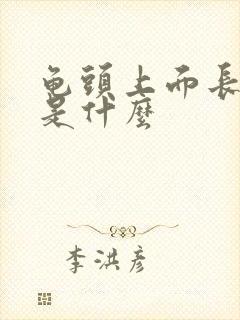 龟頭上而長
是什麼
李洪彦